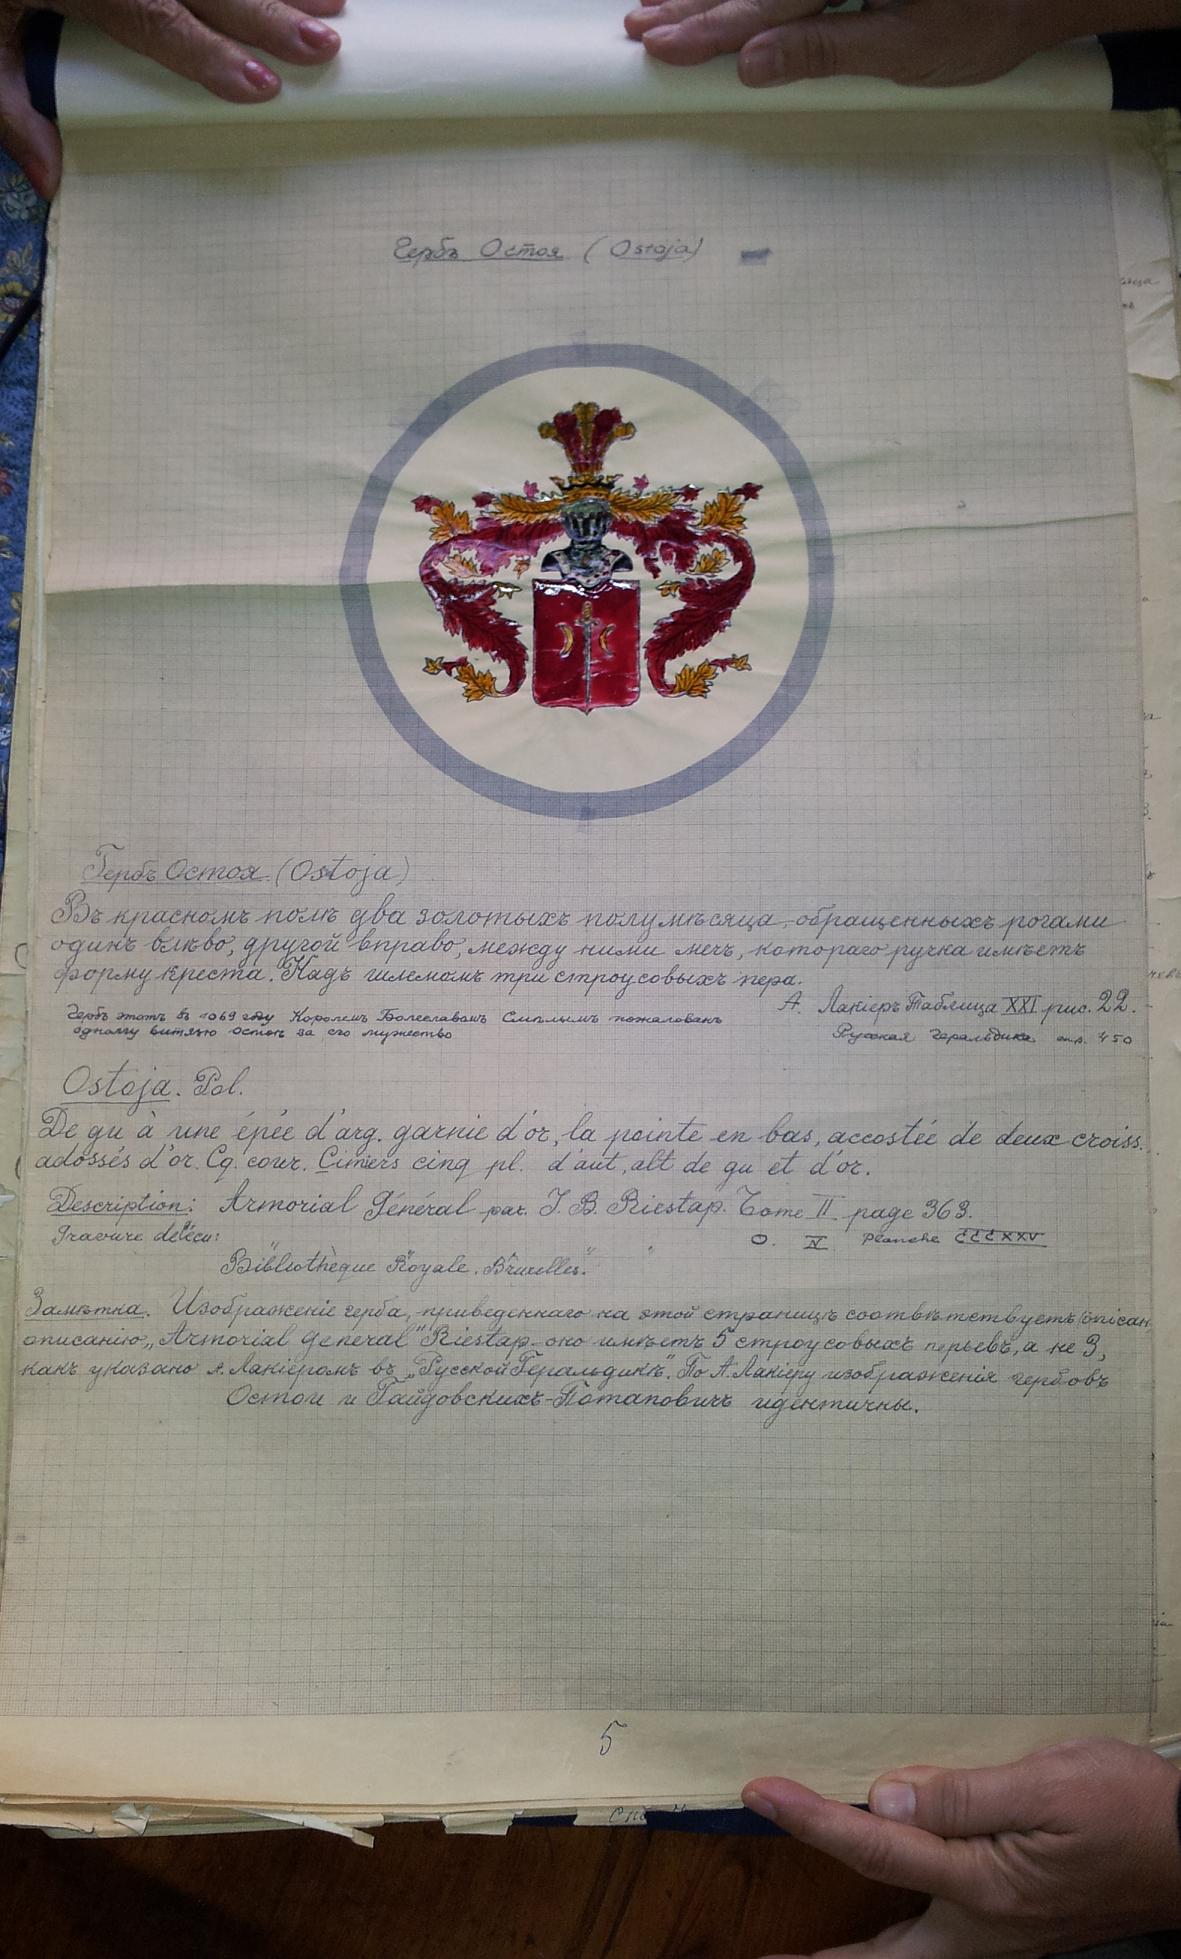 Гербъ Остоя (Ostoja)
Гербъ Остоя (Ostoja)
Въ красномъ полѣ два золотыхъ полумѣсяца, обращенныхъ рогами
одинъ влѣво, другой вправо, между ними мечъ, котораго ручка имѣетъ
форму креста. Надъ шлемомъ три строусовыхъ пера.
А. Лакіеръ Таблица XXI рис. 22.
Гербъ этотъ въ 1069 году Королемъ Болеславомъ Смѣлымъ пожалованъ
одному витязю Остоѣ за его мужество
Русская Геральдика стр. 450
Ostoja. Pol.
De gu à une épée d'arg. garnie d'or, la pointe en bas, accostée de deux croiss.
adossés d'or. Cq. cour. Cimiers cinq pl. d'aut, alt de gu et d'or.
Description: Armorial Général par J. B. Riestap. Tome II page 363.
Gravure de l'écu: " " " O. IV Planche CCCXXV
Bibliothèque Royale. Bruxelles.
Замѣтка. Изображеніе герба, приведеннаго на этой страницѣ соотвѣтствуетъ
описанію „Armorial General" Riestap оно имѣетъ 5 строусовыхъ перьевъ, а не 3,
какъ указано А. Лакіеромъ въ „Русской Геральдикѣ". По А. Лакіеру изображенія гербовъ
Остои и Гайдовскихъ-Потаповичъ идентичны.
5